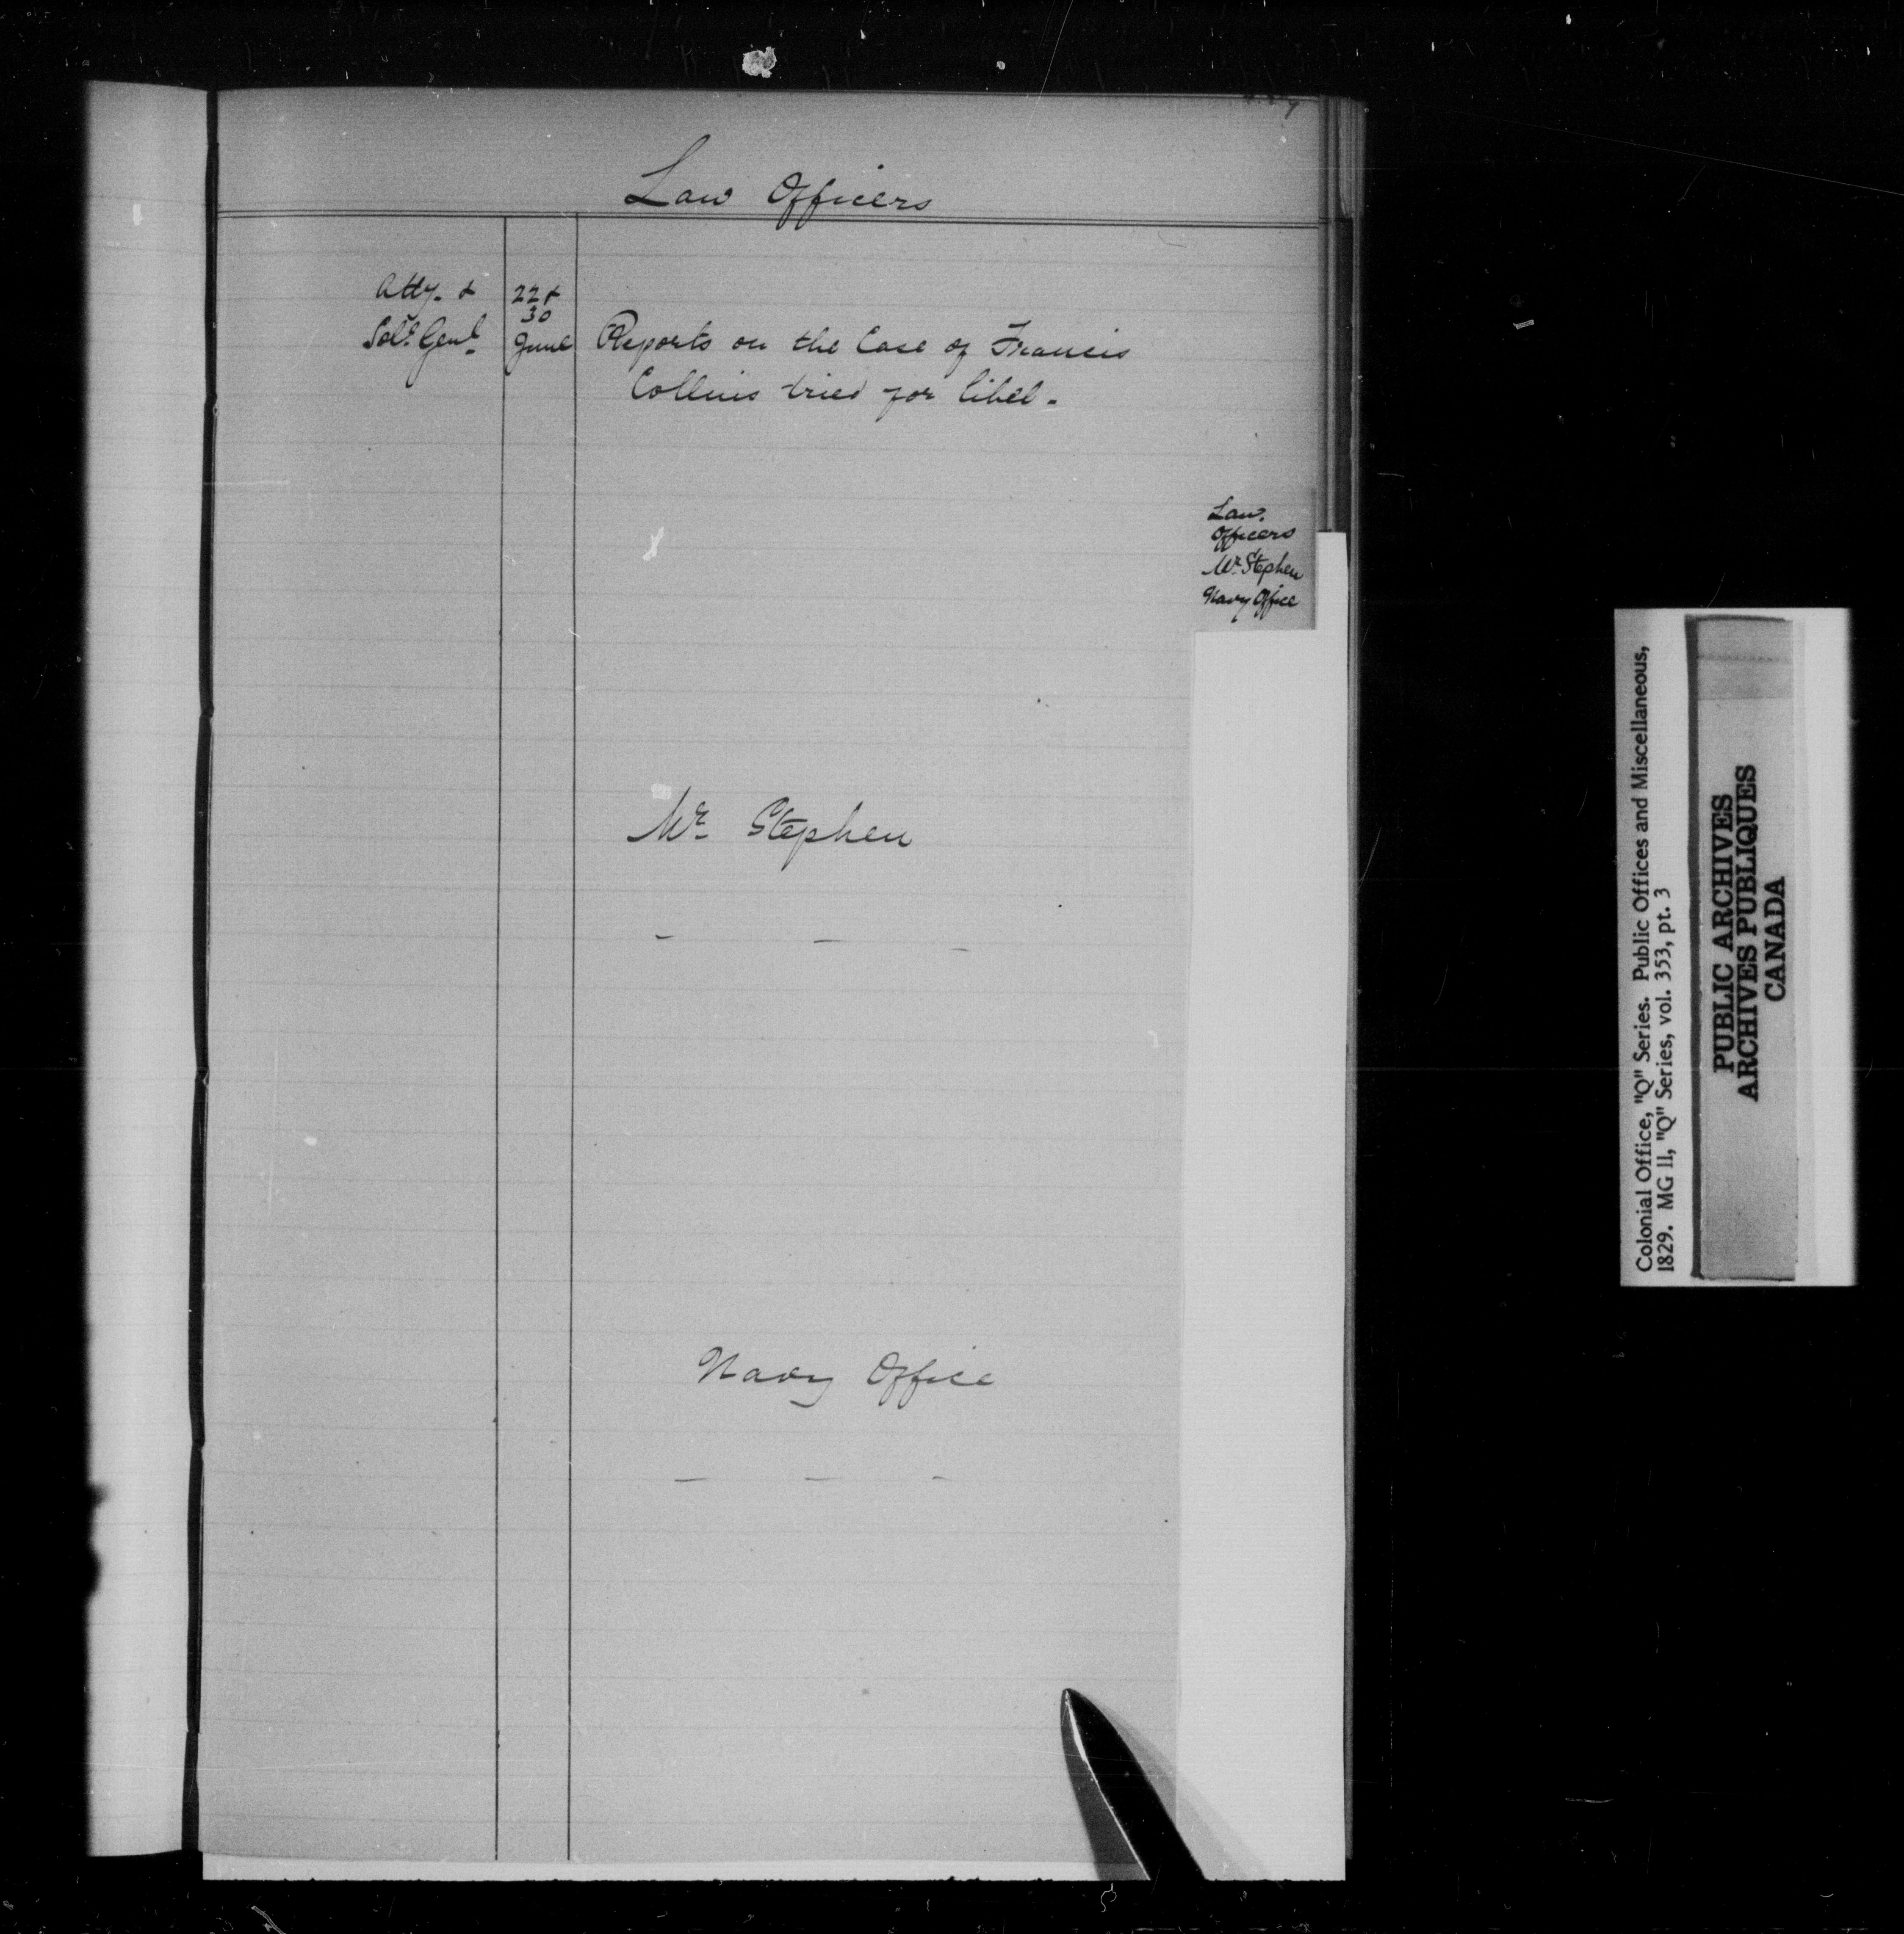 Law Officers
Atty. &
Solr. Genl.
22 &
30
June
Reports on the Case of Francis
Collins tried for libel.
Law.
Officers
Mr. Stephen
Navy Office
Mr. Stephen
Navy Office
Colonial Office, "Q" Series. Public Offices and Miscellaneous,
1829. MG 11, "Q" Series, vol. 353, pt. 3
PUBLIC ARCHIVES
ARCHIVES PUBLIQUES
CANADA